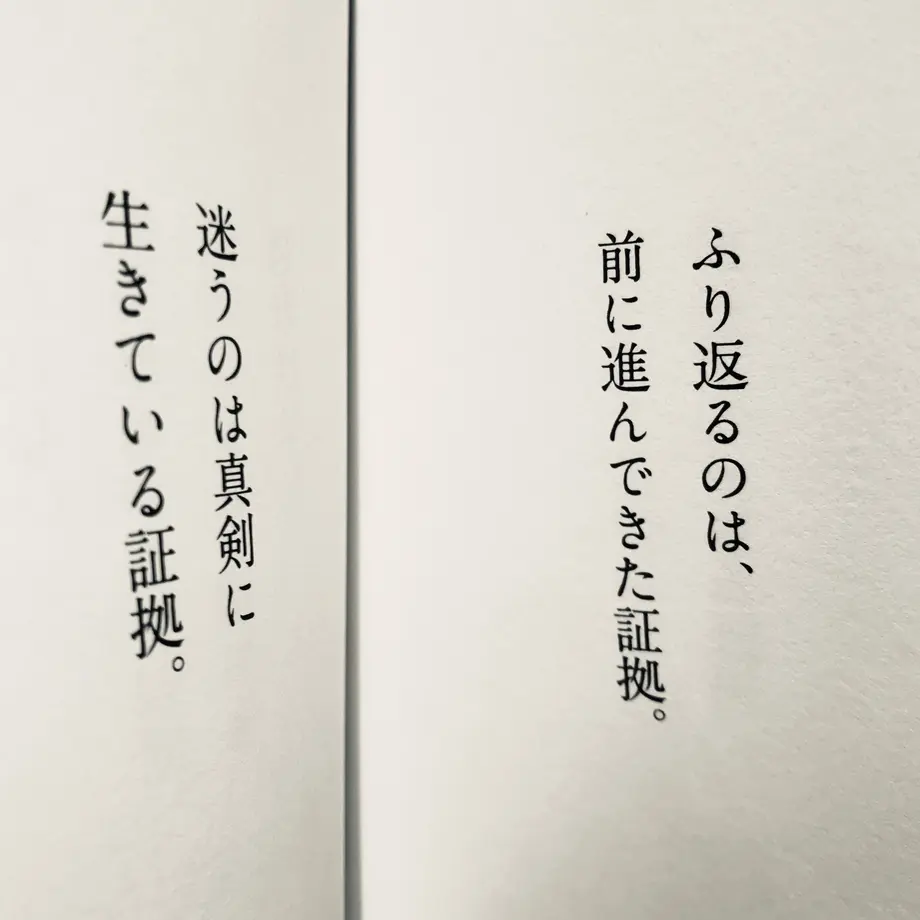 ふり返るのは、
前に進んできた証拠。
迷うのは真剣に
生きている証拠。